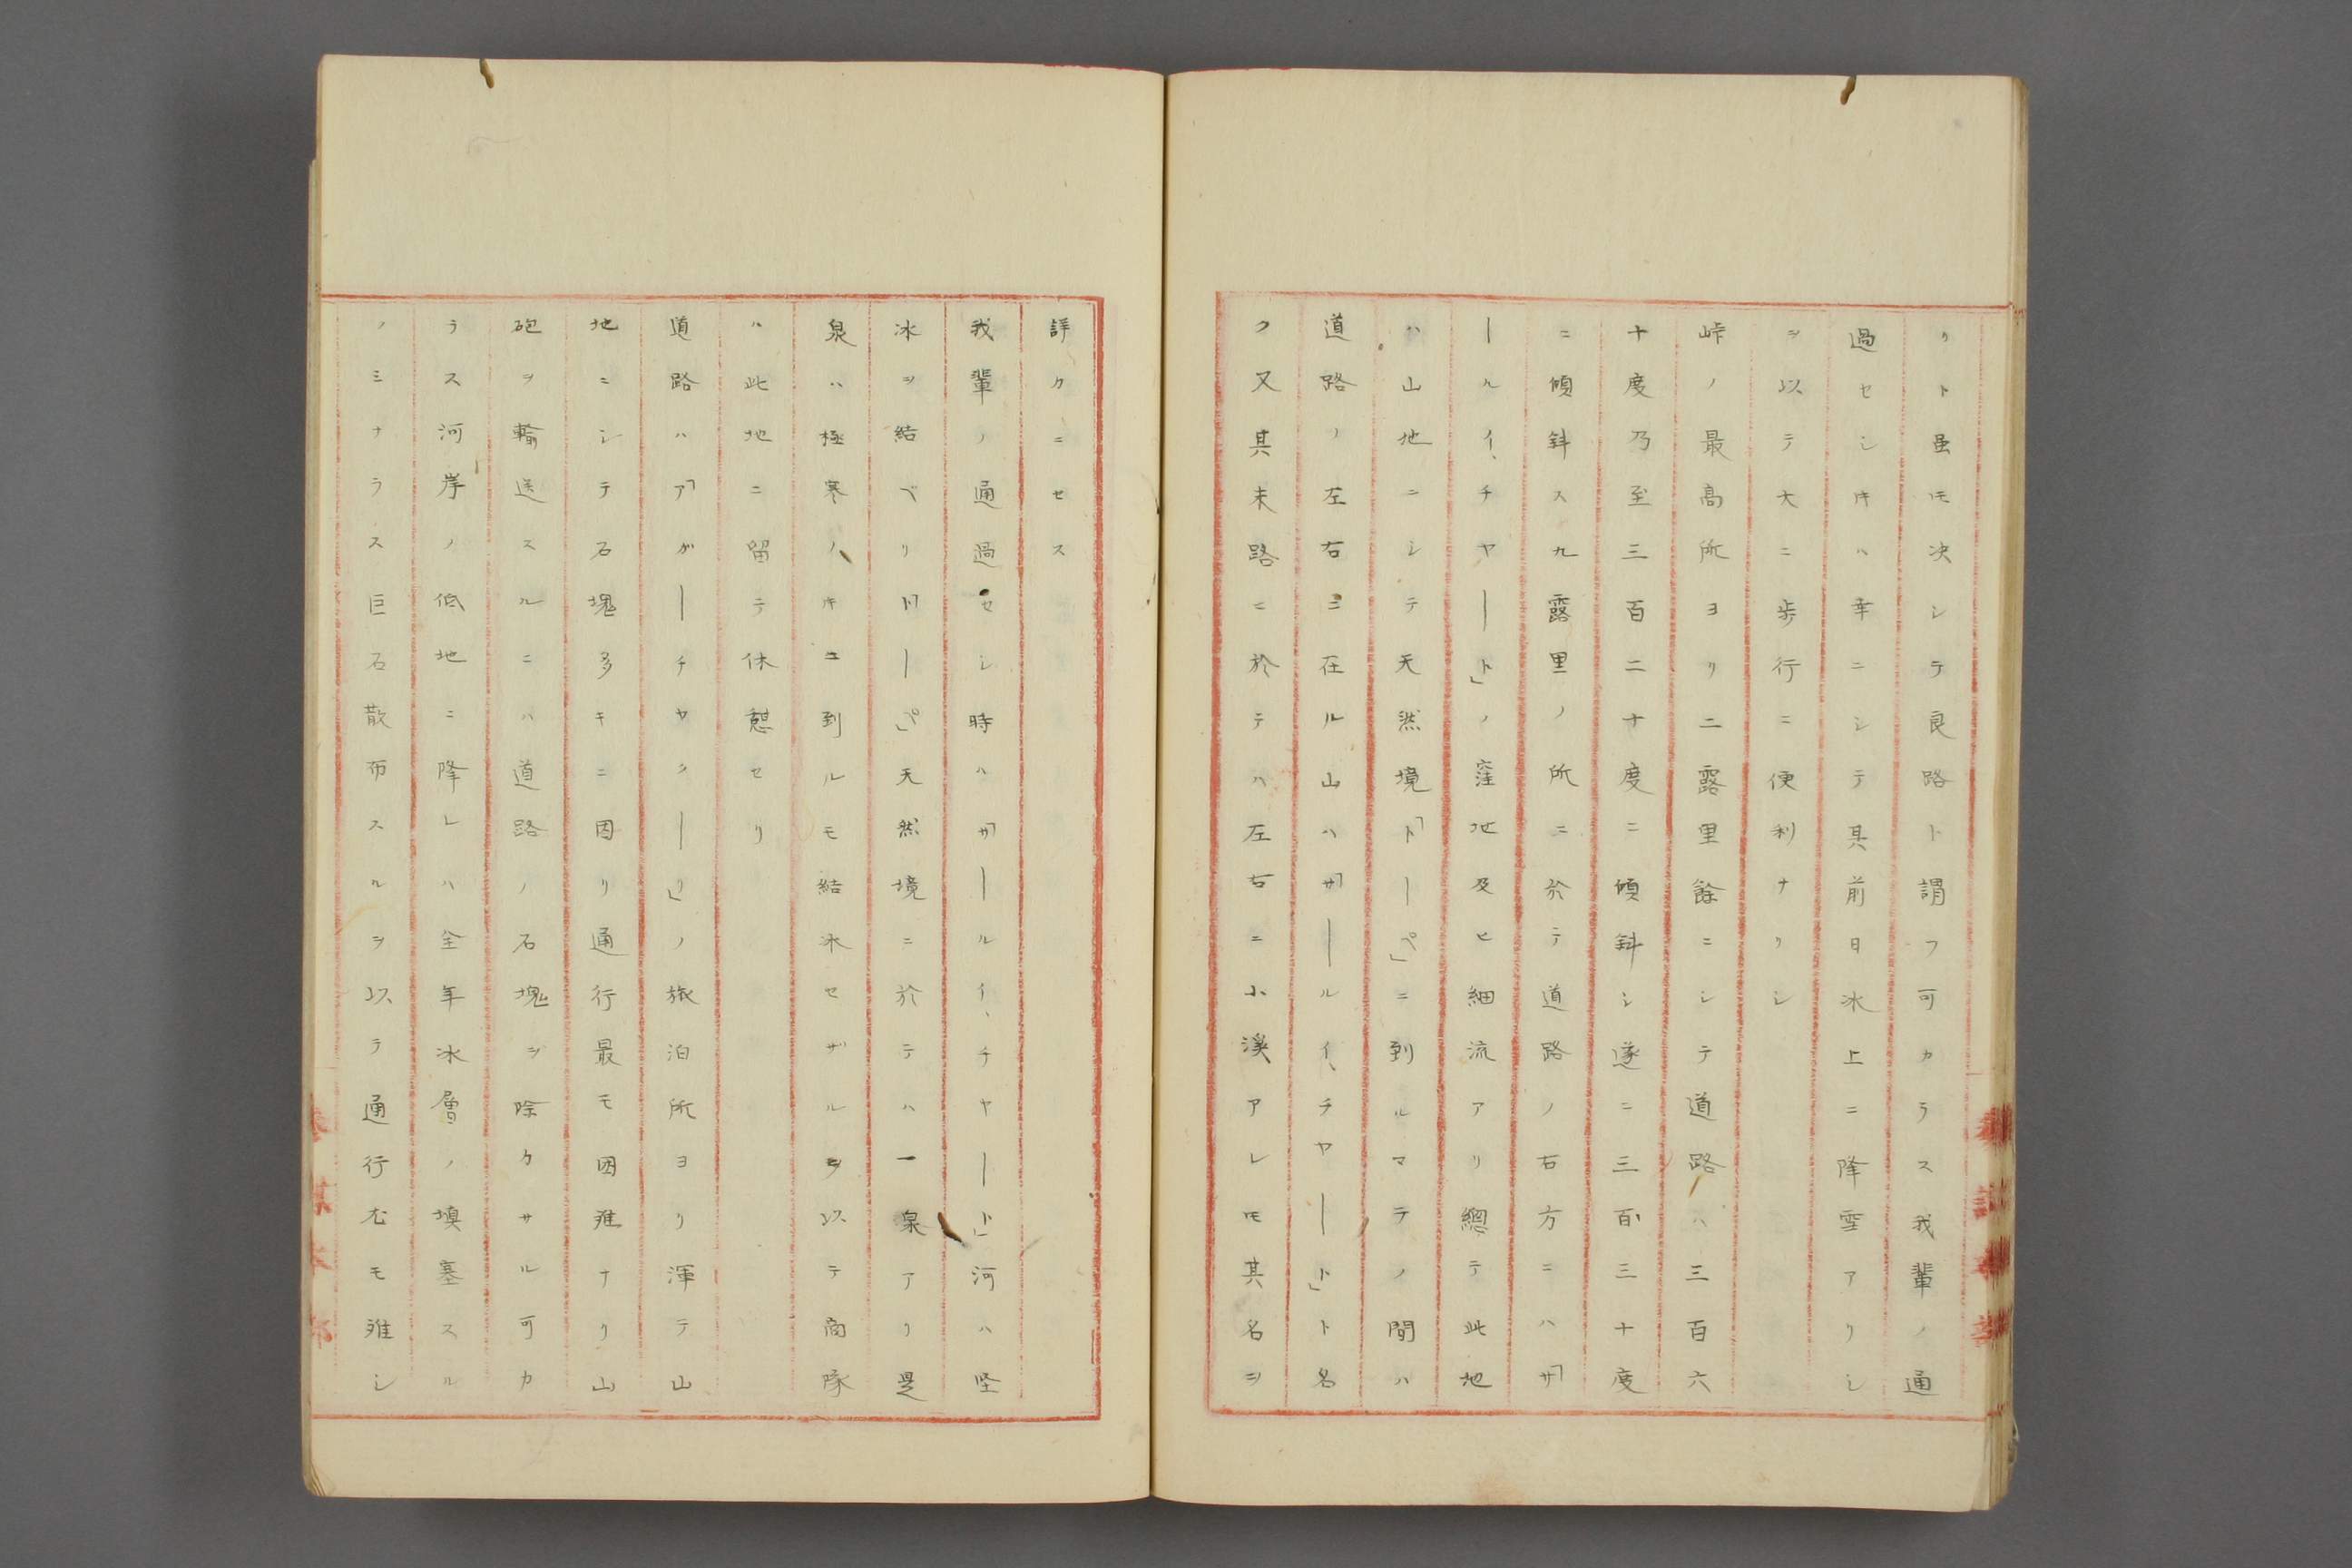 リト虽𪜈決シテ良路ト謂フ可カラス我輩ノ通
過セシ𪜈ハ幸ニシテ其前日氷上ニ降雪アリシ
ヲ以テ大ニ歩行ニ便利ナリシ
峠ノ最高所ヨリ二露里餘ニシテ道路ハ三百六
十度乃至三百二十度ニ傾斜シ遂ニ三百三十度
ニ傾斜ス九露里ノ所ニ於テ道路ノ右方ニハ「サ
ールイ、チヤート」ノ窪地及ヒ細流アリ總テ此地
ハ山地ニシテ天然境「トーペ」ニ到ルマテノ間ハ
道路ノ左右ニ在ル山ハ「サールイ、チヤート」ト名
ク又其末路ニ於テハ左右ニ小溪アレ𪜈其名ヲ
詳カニセス
我輩ノ通過セシ時ハ「サールイ、チヤート」河ハ堅
氷ヲ結ベリ「トーペ」天然境ニ於テハ一泉アリ是
泉ハ極寒ノ𪜈ニ到ルモ結氷セザルヲ以テ商隊
ハ此地ニ留テ休憩セリ
道路ハ「アガーチヤクーリ」ノ旅泊所ヨリ渾テ山
地ニシテ石塊多キニ因リ通行最モ困難ナリ山
砲ヲ輸送スルニハ道路ノ石塊ヲ除カサル可カ
ラス河岸ノ低地ニ降レハ全年氷層ノ塡塞スル
ノミナラス巨石散布スルヲ以テ通行尤モ難シ